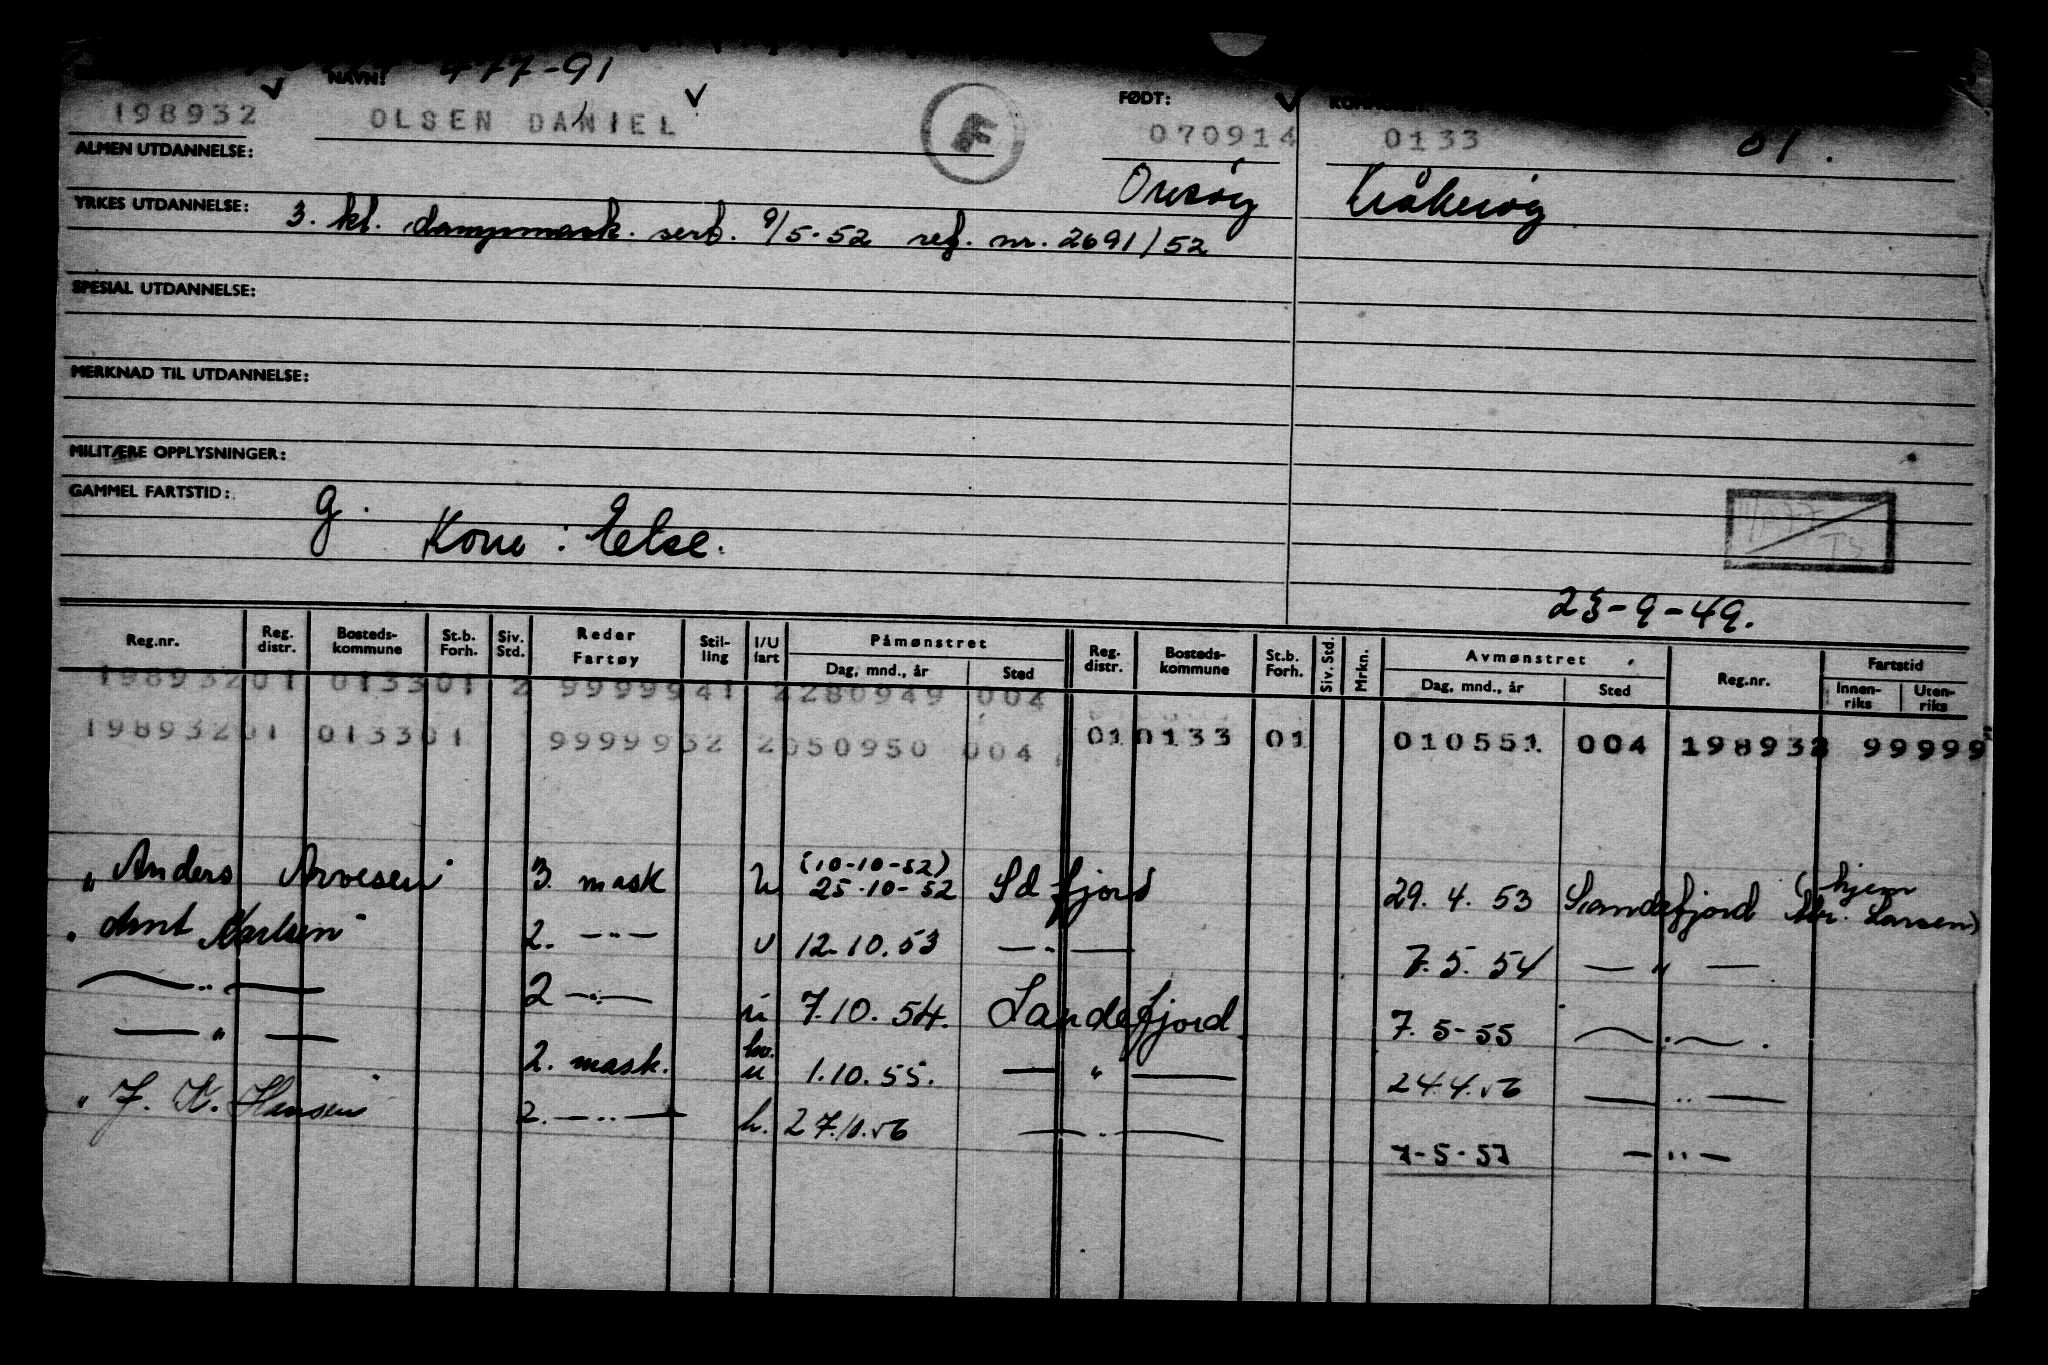 477-91
NAVN:
FØDT:
198932
OLSEN DANIEL
070914
0133
01.
ALMEN UTDANNELSE:
Kråkerøy
YRKES UTDANNELSE:
3. kl. dampmask. sert. 9/5-52 ref. nr. 2691/52
SPESIAL UTDANNELSE:
MERKNAD TIL UTDANNELSE:
MILITÆRE OPPLYSNINGER:
GAMMEL FARTSTID:
g.
Kone: Else.
23-9-49.
Reg.nr. Reg. distr. Bosteds-kommune St.b. Forh. Siv. Std. Reder Fartøy Stil-ling I/U fart Påmønstret Dag, mnd., år Sted Reg. distr. Bosteds-kommune St.b. Forh. Siv. Std. Mrkn. Avmønstret Dag, mnd., år Sted Reg.nr. Fartstid Innen-riks Uten-riks
198932 01 0133 01 2 9999941 2280949 004
198932 01 0133 01 9999932 2050950 004 01 0133 01 010551 004 198932 99999
"Anders Arvesen" 3. mask U (10-10-52) 25-10-52 Sd fjord 29. 4. 53 Sandefjord (hjem Larsen)
"Arnt Karlsen" 2. —"— U 12.10.53 —"— 7.5.54 —"—
—"— 2 —"— u 7.10.54. Sandefjord 7.5-55 —"—.
—"— 2. mask. hv. u 1.10.55. —"— 24.4.56 —"—
"J. K. Hansen" 2. —"— h. 27.10.56 —"— 7-5-57 —"—